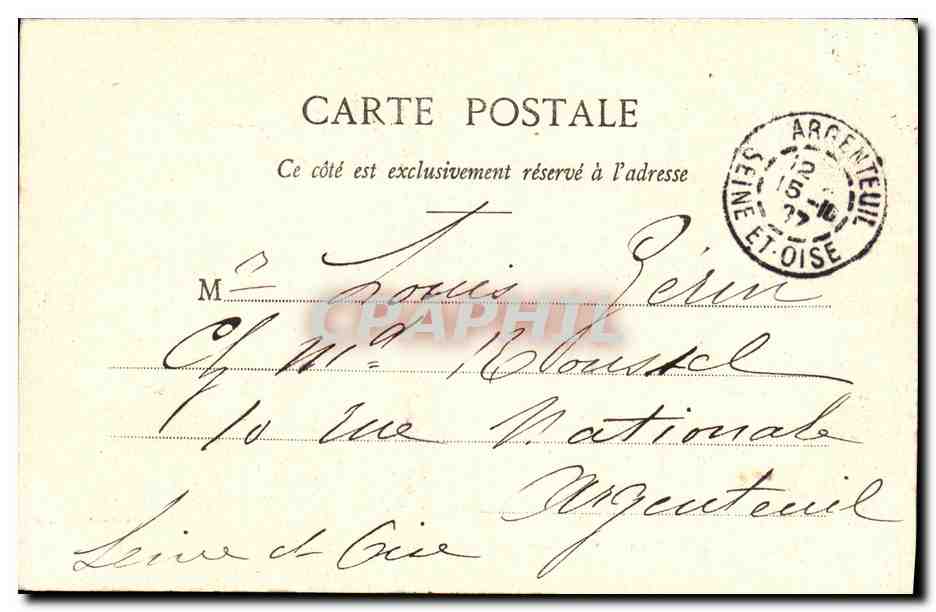 CARTE POSTALE
Ce côté est exclusivement réservé à l'adresse
ARGENTEUIL
12
15
SEINE ET-OISE
Mr Louis Gérin
CPAPHIL
Ch Md Roussel
10 rue Nationale
Argenteuil
Seine et Oise